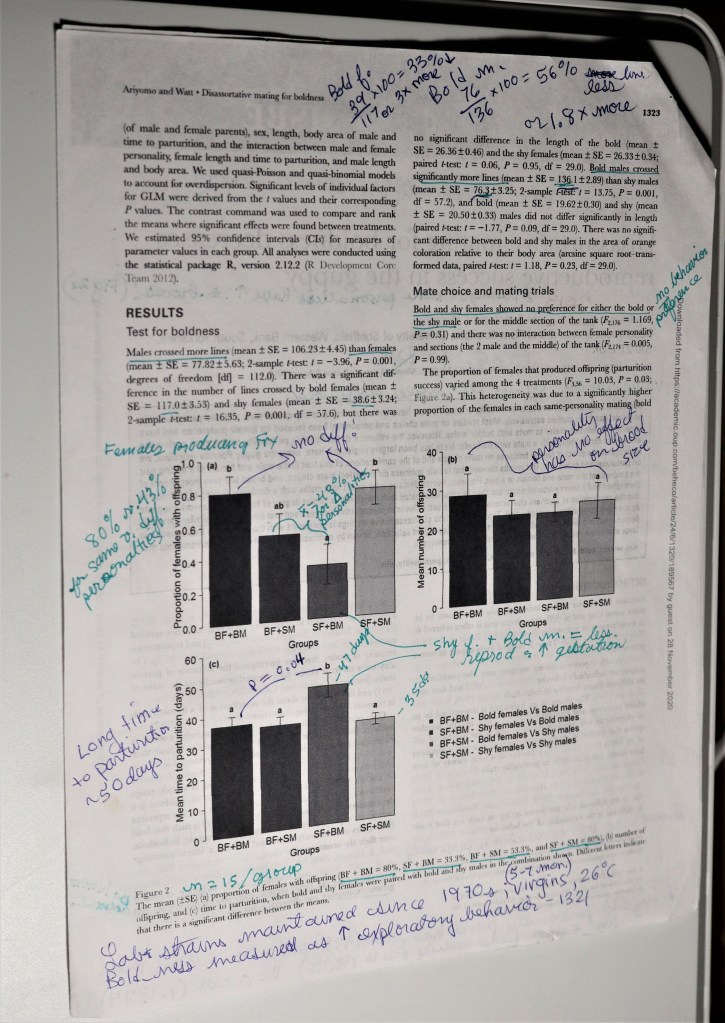 Bold f.
39/117 x100 = 33%↓
or 3x more
Bold m.
76/136 x100 = 56% less
or 1.8x more
Ariyomo and Watt • Disassortative mating for boldness
1323
(of male and female parents), sex, length, body area of male and
time to parturition, and the interaction between male and female
personality, female length and time to parturition, and male length
and body area. We used quasi-Poisson and quasi-binomial models
to account for overdispersion. Significant levels of individual factors
for GLM were derived from the t values and their corresponding
P values. The contrast command was used to compare and rank
the means where significant effects were found between treatments.
We estimated 95% confidence intervals (CIs) for measures of
parameter values in each group. All analyses were conducted using
the statistical package R, version 2.12.2 (R Development Core
Team 2012).
RESULTS
Test for boldness
Males crossed more lines (mean ± SE = 106.23±4.45) than females
(mean ± SE = 77.82±5.63; 2-sample t-test: t = −3.96, P = 0.001,
degrees of freedom [df] = 112.0). There was a significant dif-
ference in the number of lines crossed by bold females (mean ±
SE = 117.0±3.53) and shy females (mean ± SE = 38.6±3.24;
2-sample t-test: t = 16.35, P = 0.001, df = 57.6), but there was
no significant difference in the length of the bold (mean ±
SE = 26.36±0.46) and the shy females (mean ± SE = 26.33±0.34;
paired t-test: t = 0.06, P = 0.95, df = 29.0). Bold males crossed
significantly more lines (mean ± SE = 136.1±2.89) than shy males
(mean ± SE = 76.3±3.25; 2-sample t-test: t = 13.75, P = 0.001,
df = 57.2), and bold (mean ± SE = 19.62±0.30) and shy (mean
± SE = 20.50±0.33) males did not differ significantly in length
(paired t-test: t = −1.77, P = 0.09, df = 29.0). There was no signifi-
cant difference between bold and shy males in the area of orange
coloration relative to their body area (arcsine square root-trans-
formed data, paired t-test: t = 1.18, P = 0.23, df = 29.0).
Mate choice and mating trials
Bold and shy females showed no preference for either the bold or
the shy male or for the middle section of the tank (F2,176 = 1.169,
P = 0.31) and there was no interaction between female personality
and sections (the 2 male and the middle) of the tank (F2,176 = 0.005,
P = 0.99).
The proportion of females that produced offspring (parturition
success) varied among the 4 treatments (F3,56 = 10.03, P = 0.03;
Figure 2a). This heterogeneity was due to a significantly higher
proportion of the females in each same-personality mating (bold
no behavior
preference
Downloaded from https://academic.oup.com/beheco/article/24/6/1320/189567 by guest on 28 November 2020
Females producing
no diff!
80% vs 43%
for same v. diff.
personalities
x̄ = 43%
for ≠
personalities
personality
has no effect
on brood
size
(a)
Proportion of females with offspring
1.0
0.8
0.6
0.4
0.2
0.0
b
ab
a
b
BF+BM
BF+SM
SF+BM
SF+SM
Groups
(b)
Mean number of offspring
40
30
20
10
0
a
a
a
a
BF+BM
BF+SM
SF+BM
SF+SM
Groups
shy f. + Bold m. = less
reprod & ↑ gestation
(c)
Mean time to parturition (days)
60
50
40
30
20
10
0
a
a
b
a
P = 0.04
~47 days
~35 ds
BF+BM
BF+SM
SF+BM
SF+SM
Groups
Long time
to parturition
~50 days
BF+BM - Bold females Vs Bold males
SF+BM - Shy females Vs Bold males
BF+SM - Bold females Vs Shy males
SF+SM - Shy females Vs Shy males
n = 15/group
Figure 2
The mean (±SE) (a) proportion of females with offspring (BF + BM = 80%, SF + BM = 33.3%, BF + SM = 53.3%, and SF + SM = 80%), (b) number of
offspring, and (c) time to parturition, when bold and shy females were paired with bold and shy males in the combination shown. Different letters indicate
that there is a significant difference between the means.
(5-7 mon)
Lab strains maintained since 1970s; Virgins, 26°C
Boldness measured as ↑ exploratory behavior - 1321